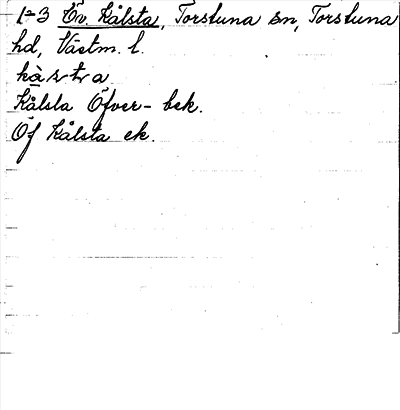 1-3 Öv. Kålsta, Torstuna sn, Torstuna
hd, Västm. l.
Kålsla Öfver- bek.
Öf Kålsta ek.